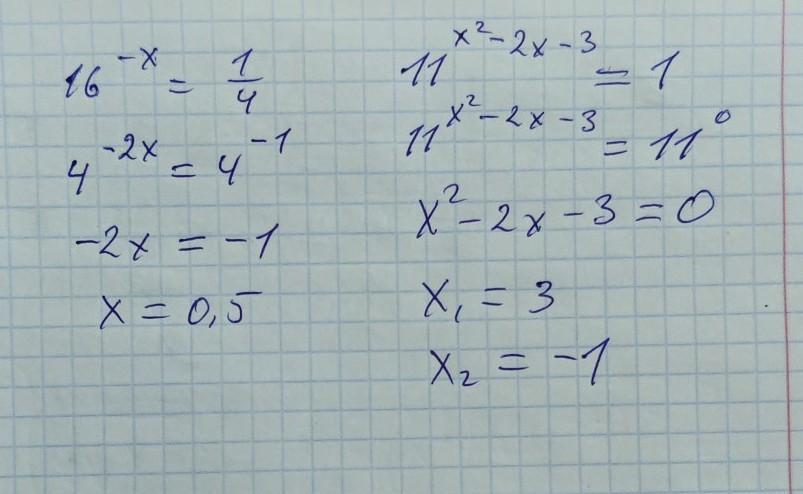 16^{-x} = \frac{1}{4}
4^{-2x} = 4^{-1}
-2x = -1
x = 0,5
11^{x^2-2x-3} = 1
11^{x^2-2x-3} = 11^0
x^2-2x-3=0
x_1 = 3
x_2 = -1